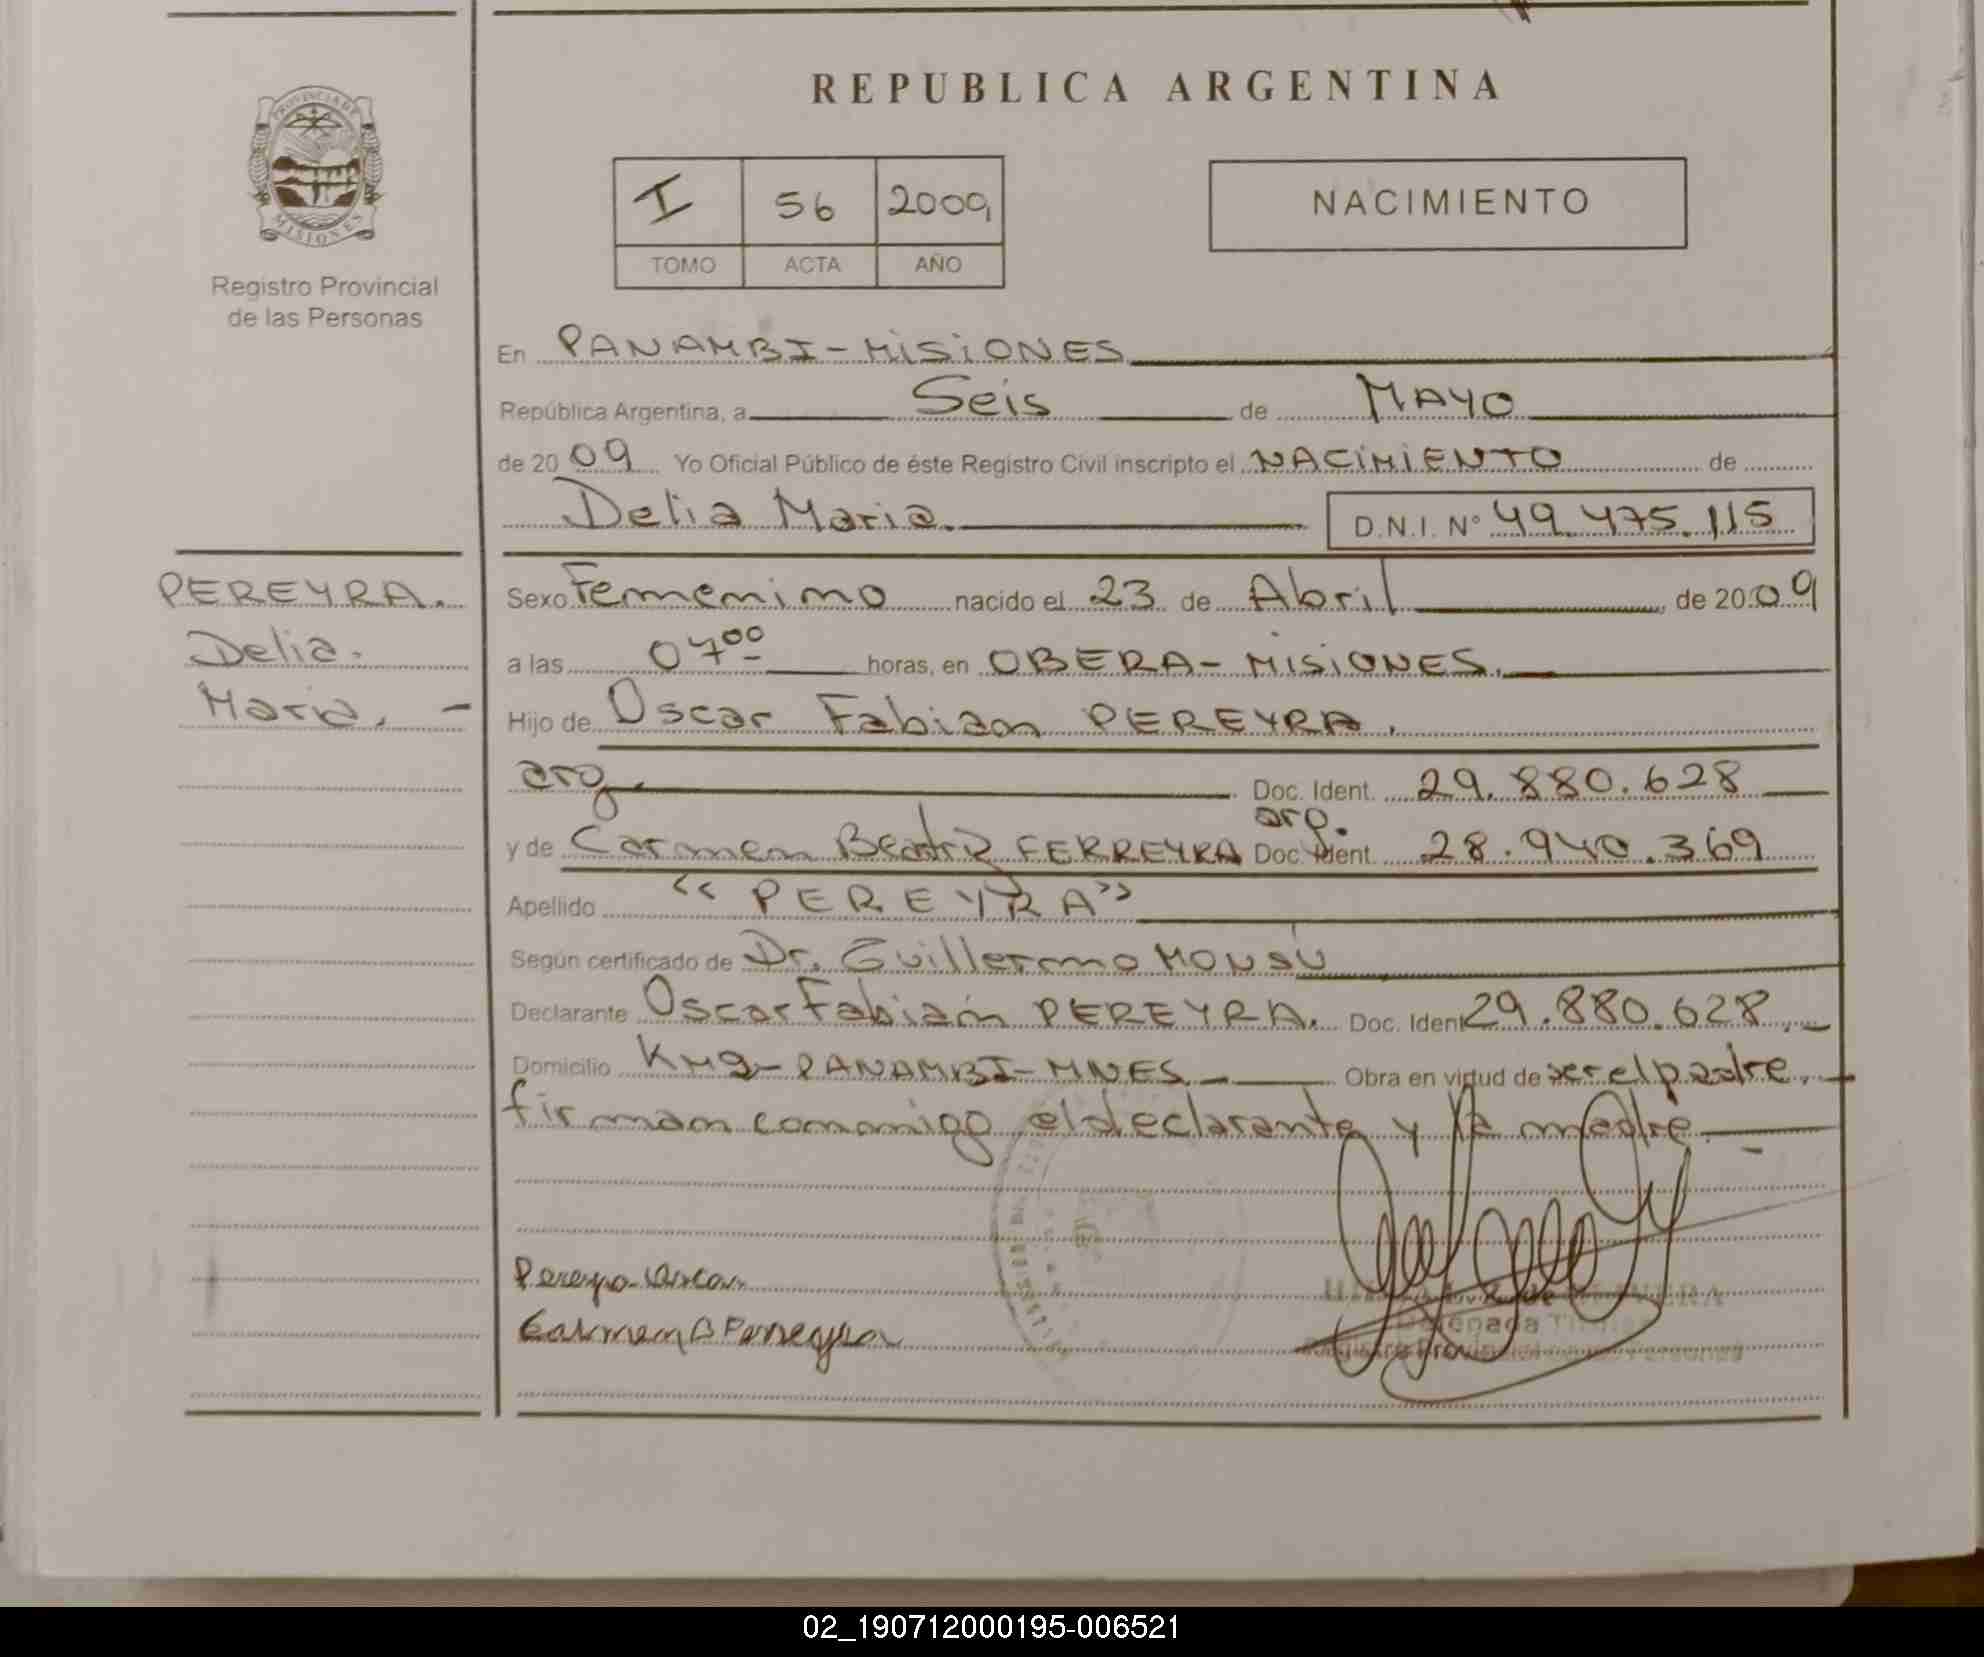 REPUBLICA ARGENTINA
PROVINCIA DE
MISIONES
Registro Provincial
de las Personas
I 56 2009
TOMO ACTA AÑO
NACIMIENTO
En PANAMBI-MISIONES
República Argentina, a Seis de MAYO
de 20 09 Yo Oficial Público de éste Registro Civil inscripto el NACIMIENTO de
Delia Maria. D.N.I. Nº 49.475.115
PEREYRA.
Delia.
Maria. -
Sexo Femenino nacido el 23 de Abril, de 20 09
a las 07 00 horas, en OBERA-MISIONES.
Hijo de Oscar Fabian PEREYRA.
arg. Doc. Ident. 29.880.628
arg.
y de Carmen Beatriz FERREYRA Doc. Ident. 28.940.369
Apellido "PEREYRA"
Según certificado de Dr. Guillermo
Declarante Oscar Fabián PEREYRA. Doc. Ident 29.880.628.-
Domicilio KM9-PANAMBI-MNES - Obra en virtud de ser el padre.-
firman conmigo el declarante y la madre -
Pereyra Oscar
Carmen B Ferreyra
Registro Provincial
02_190712000195-006521